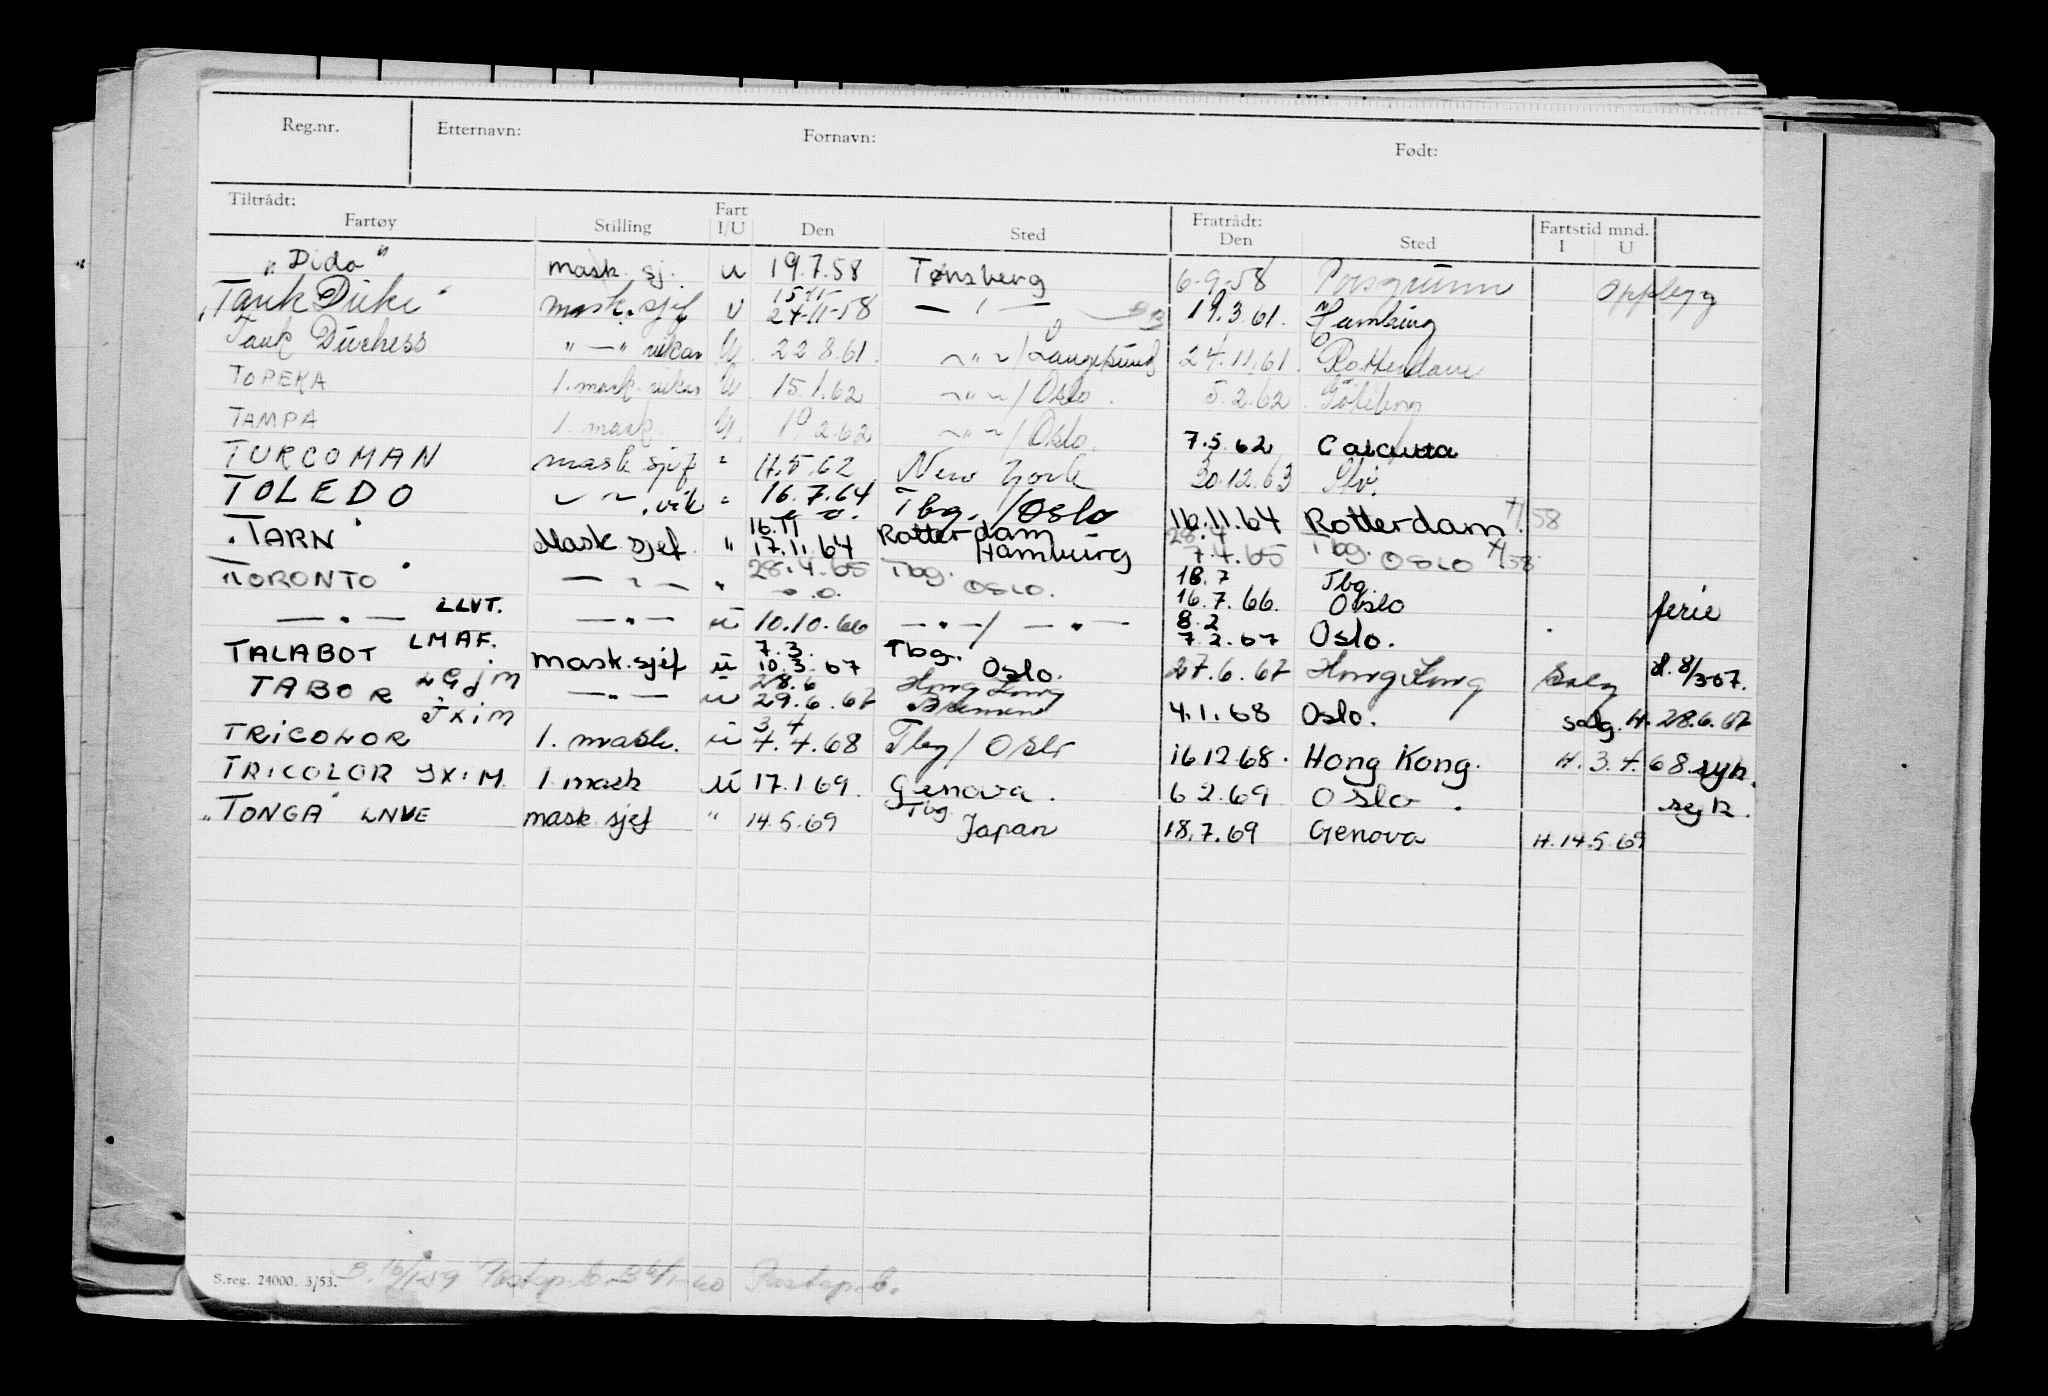 Reg.nr. Etternavn: Fornavn: Født:
Tiltrådt: Fartøy Stilling Fart I/U Den Sted Fratrådt: Den Sted Fartstid mnd. I U
"Dido" mask. sj. u 19.7.58 Tønsberg 6-9-58 Porsgrunn opplegg
"Tank Duke" mask. sjef u 15-11- 24-11-58 — " — 19.3.61. Hamburg
Tank Duchess " — " vikar U. 22 8.61. ~ " ~ / Langesund 24.11.61. Rotterdam
TOPEKA 1. mask. vikar U. 15.1.62 ~ " ~ / Oslo. 5.2.62 Göteborg
TAMPA 1. mask. U. 19 2.62 ~ " ~ / Oslo. 7.5.62 Calcutta
TURCOMAN mask sjef " 11.5.62 New York 30.12.63
TOLEDO ~ " ~ . vik " 16.7.64 Tbg. / Oslo 16.11.64 Rotterdam.
"TARN" Mask sjef " 16.11 17.11.64 Rotterdam Hamburg 28.4 7.4.65 Tbg. OSLO
"TORONTO" — " — " 28.4.65 Tbg. OSLO. 18.7 16.7.66. Tbg Oslo
— " — LLVT. — " — u 10.10.66 — " — / — " — 8.2 7.2.67 Oslo. ferie
TALABOT LMAF. mask. sjef u 7.3. 10.3.67 Tbg. Oslo. 27.6.67 Hong Kong Salg H. 8/3-67.
TABOR LGJM — " — u 28.6 29.6.67 Hong Kong Bremen 4.1.68 Oslo. salg. H. 28.6.67
TRICOLOR JXIM 1. mask. u 3.4 4.4.68 Tbg / Oslo 16.12.68. Hong Kong. H. 3.4.68 syk.
TRICOLOR JXIM. 1. mask u 17.1 69. Genova. 6 2.69 Oslo. syk.
"TONGA" LNVE mask. sjef " 14.5.69 Tbg. Japan 18.7.69 Genova H. 14.5.69
S.reg. 24000. 3/53.